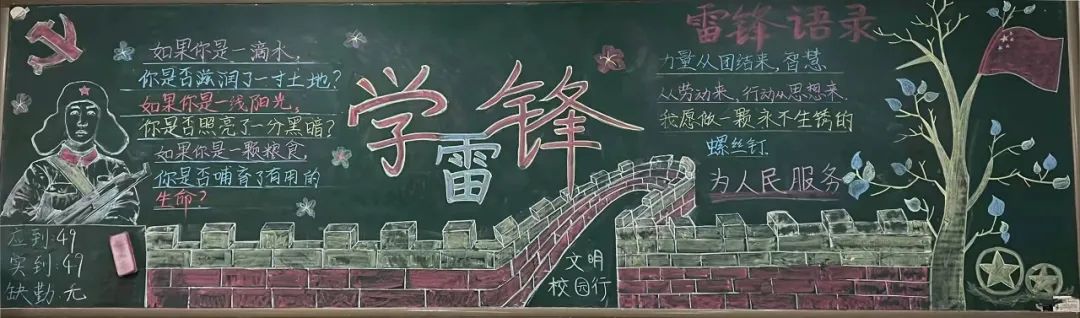 如果你是一滴水,
你是否滋润了一寸土地?
如果你是一线阳光,
你是否照亮了一分黑暗?
如果你是一颗粮食,
你是否哺育了有用的
生命?
应到:49
实到:49
缺勤:无
学雷锋
文明
校园行
雷锋语录
力量从团结来,智慧
从劳动来,行动从思想来.
我愿做一颗永不生锈的
螺丝钉.
为人民服务